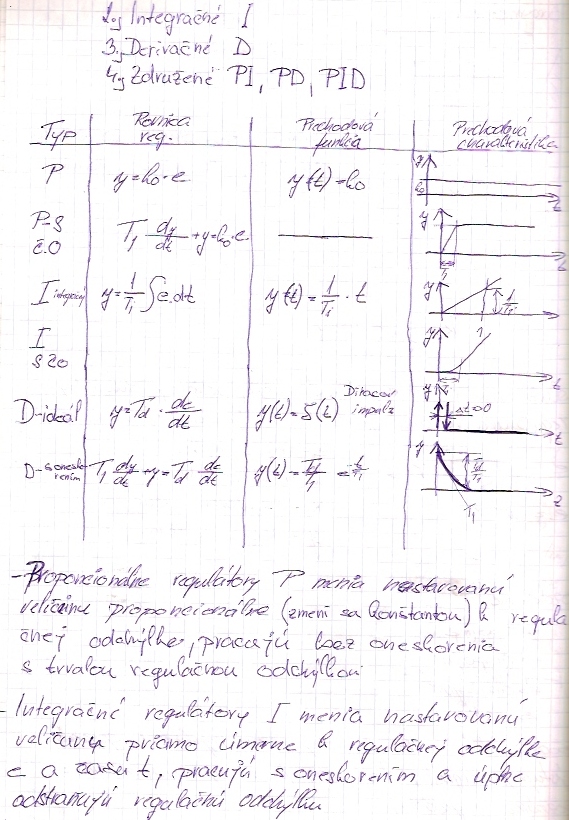 2., Integračné I
3., Derivačné D
4., Združené PI, PD, PID
Typ Rovnica reg. Prechodová funkcia Prechodová charakteristika
P y=k₀·e y(t)=k₀ y k₀ t
P-S č.O T₁ dy/dt +y=k₀·e — y T₁ t
I integračný y=1/Tᵢ ∫e.dt y(t)=1/Tᵢ · t y 1 1/Tᵢ t
I s čo y 1 t
D-ideál y=Td · de/dt y(t)=δ(t) Diracov impulz y Δt=0 t
D-s oneskorením T₁ dy/dt +y=Td de/dt y(t)=Td/T₁ y Td/T₁ T₁
-Proporcionálne regulátory P menia nastavovanú
veličinu proporcionálne (zmení sa konštantou) k regula
čnej odchýlke, pracujú bez oneskorenia
s trvalou regulačnou odchýlkou
-Integračné regulátory I menia nastavovanú
veličinu priamo úmerne k regulačnej odchýlke
e a času t, pracujú s oneskorením a úplne
odstraňujú regulačnú odchýlku